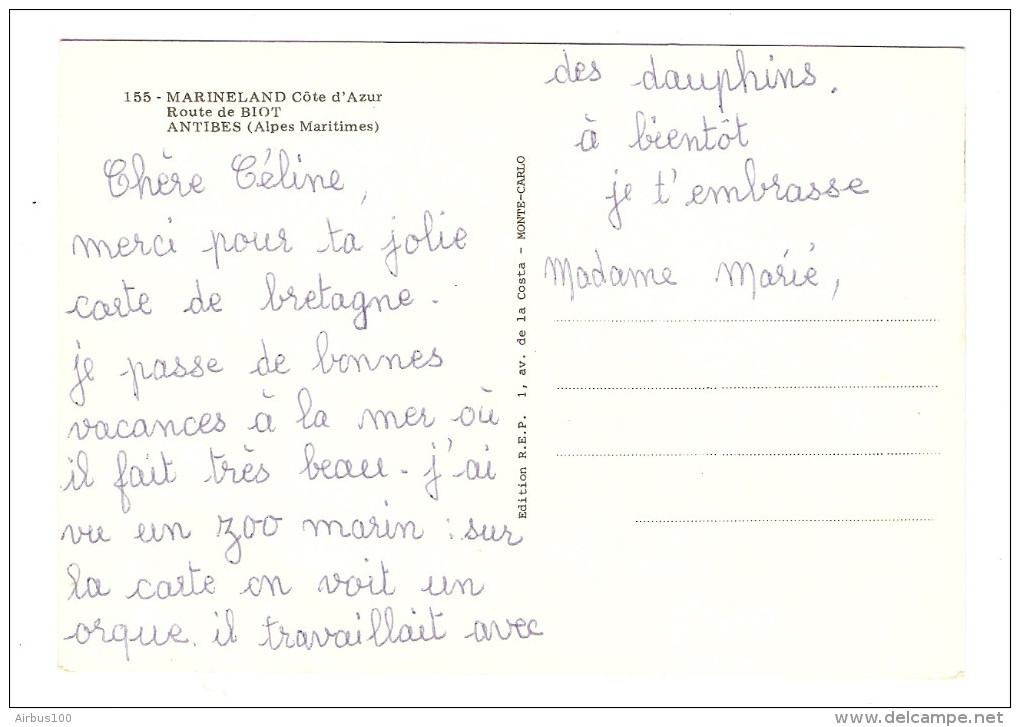 155 - MARINELAND Côte d'Azur
Route de BIOT
ANTIBES (Alpes Maritimes)
Chère Céline,
merci pour ta jolie
carte de bretagne.
je passe de bonnes
vacances à la mer où
il fait très beau. j'ai
vu un zoo marin : sur
la carte on voit un
orque. il travaillait avec
des dauphins.
à bientôt
je t'embrasse
Madame Marié,
Edition R.E.P. 1, av. de la Costa - MONTE-CARLO
Airbus100
www.delcampe.net